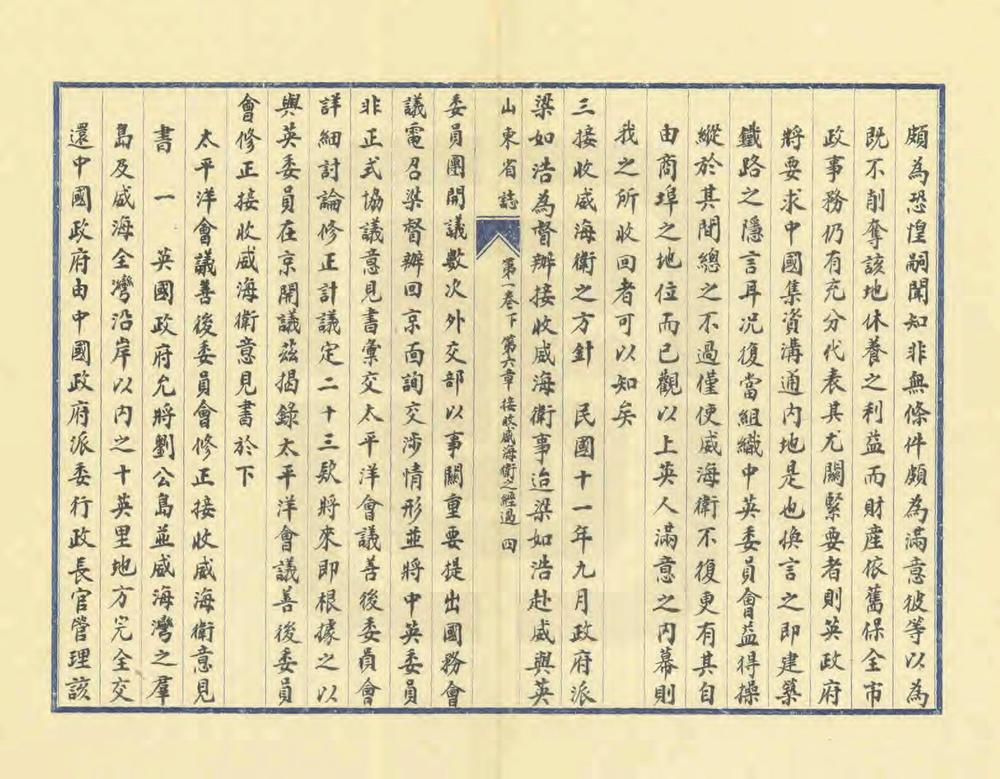 頗為恐惶嗣聞知非無條件頗為滿意彼等以為
既不削奪該地休養之利益而財產依舊保全市
政事務仍有充分代表其尤關緊要者則英政府
將要求中國集資溝通內地是也換言之即建築
鐵路之隱言耳況復當組織中英委員會益得操
縱於其間總之不過僅使威海衛不復更有其自
由商埠之地位而已觀以上英人滿意之內幕則
我之所收回者可以知矣
三接收威海衛之方針 民國十一年九月政府派
梁如浩為督辦接收威海衛事迨梁如浩赴威與英
山東省誌 第一卷下 第六章 接收威海衛之經過 四
委員團開議數次外交部以事關重要提出國務會
議電召梁督辦回京面詢交涉情形並將中英委員
非正式協議意見書彙交太平洋會議善後委員會
詳細討論修正計議定二十三款將來即根據之以
與英委員在京開議茲揭錄太平洋會議善後委員
會修正接收威海衛意見書於下
太平洋會議善後委員會修正接收威海衛意見
書 一 英國政府允將劉公島並威海灣之羣
島及威海全灣沿岸以內之十英里地方完全交
還中國政府由中國政府派委行政長官管理該